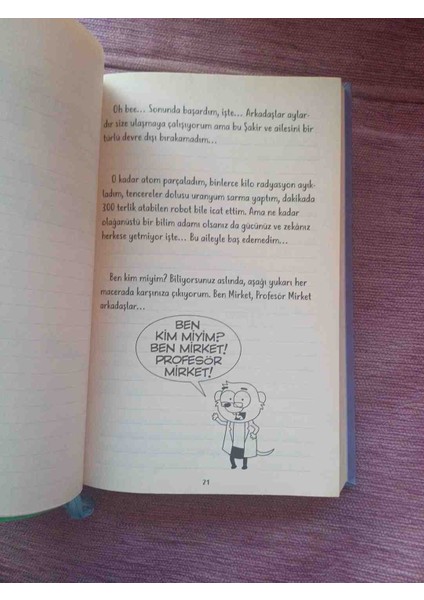 Oh bee... Sonunda başardım, işte... Arkadaşlar aylar-
dır size ulaşmaya çalışıyorum ama bu Şakir ve ailesini bir
türlü devre dışı bırakamadım...
O kadar atom parçaladım, binlerce kilo radyasyon ayık-
ladım, tencereler dolusu uranyum sarma yaptım, dakikada
300 terlik atabilen robot bile icat ettim. Ama ne kadar
olağanüstü bir bilim adamı olsanız da gücünüz ve zekânız
herkese yetmiyor işte... Bu aileyle baş edemedim...
Ben kim miyim? Biliyorsunuz aslında, aşağı yukarı her
macerada karşınıza çıkıyorum. Ben Mirket, Profesör Mirket
arkadaşlar...
BEN
KİM MİYİM?
BEN MİRKET!
PROFESÖR
MİRKET!
71